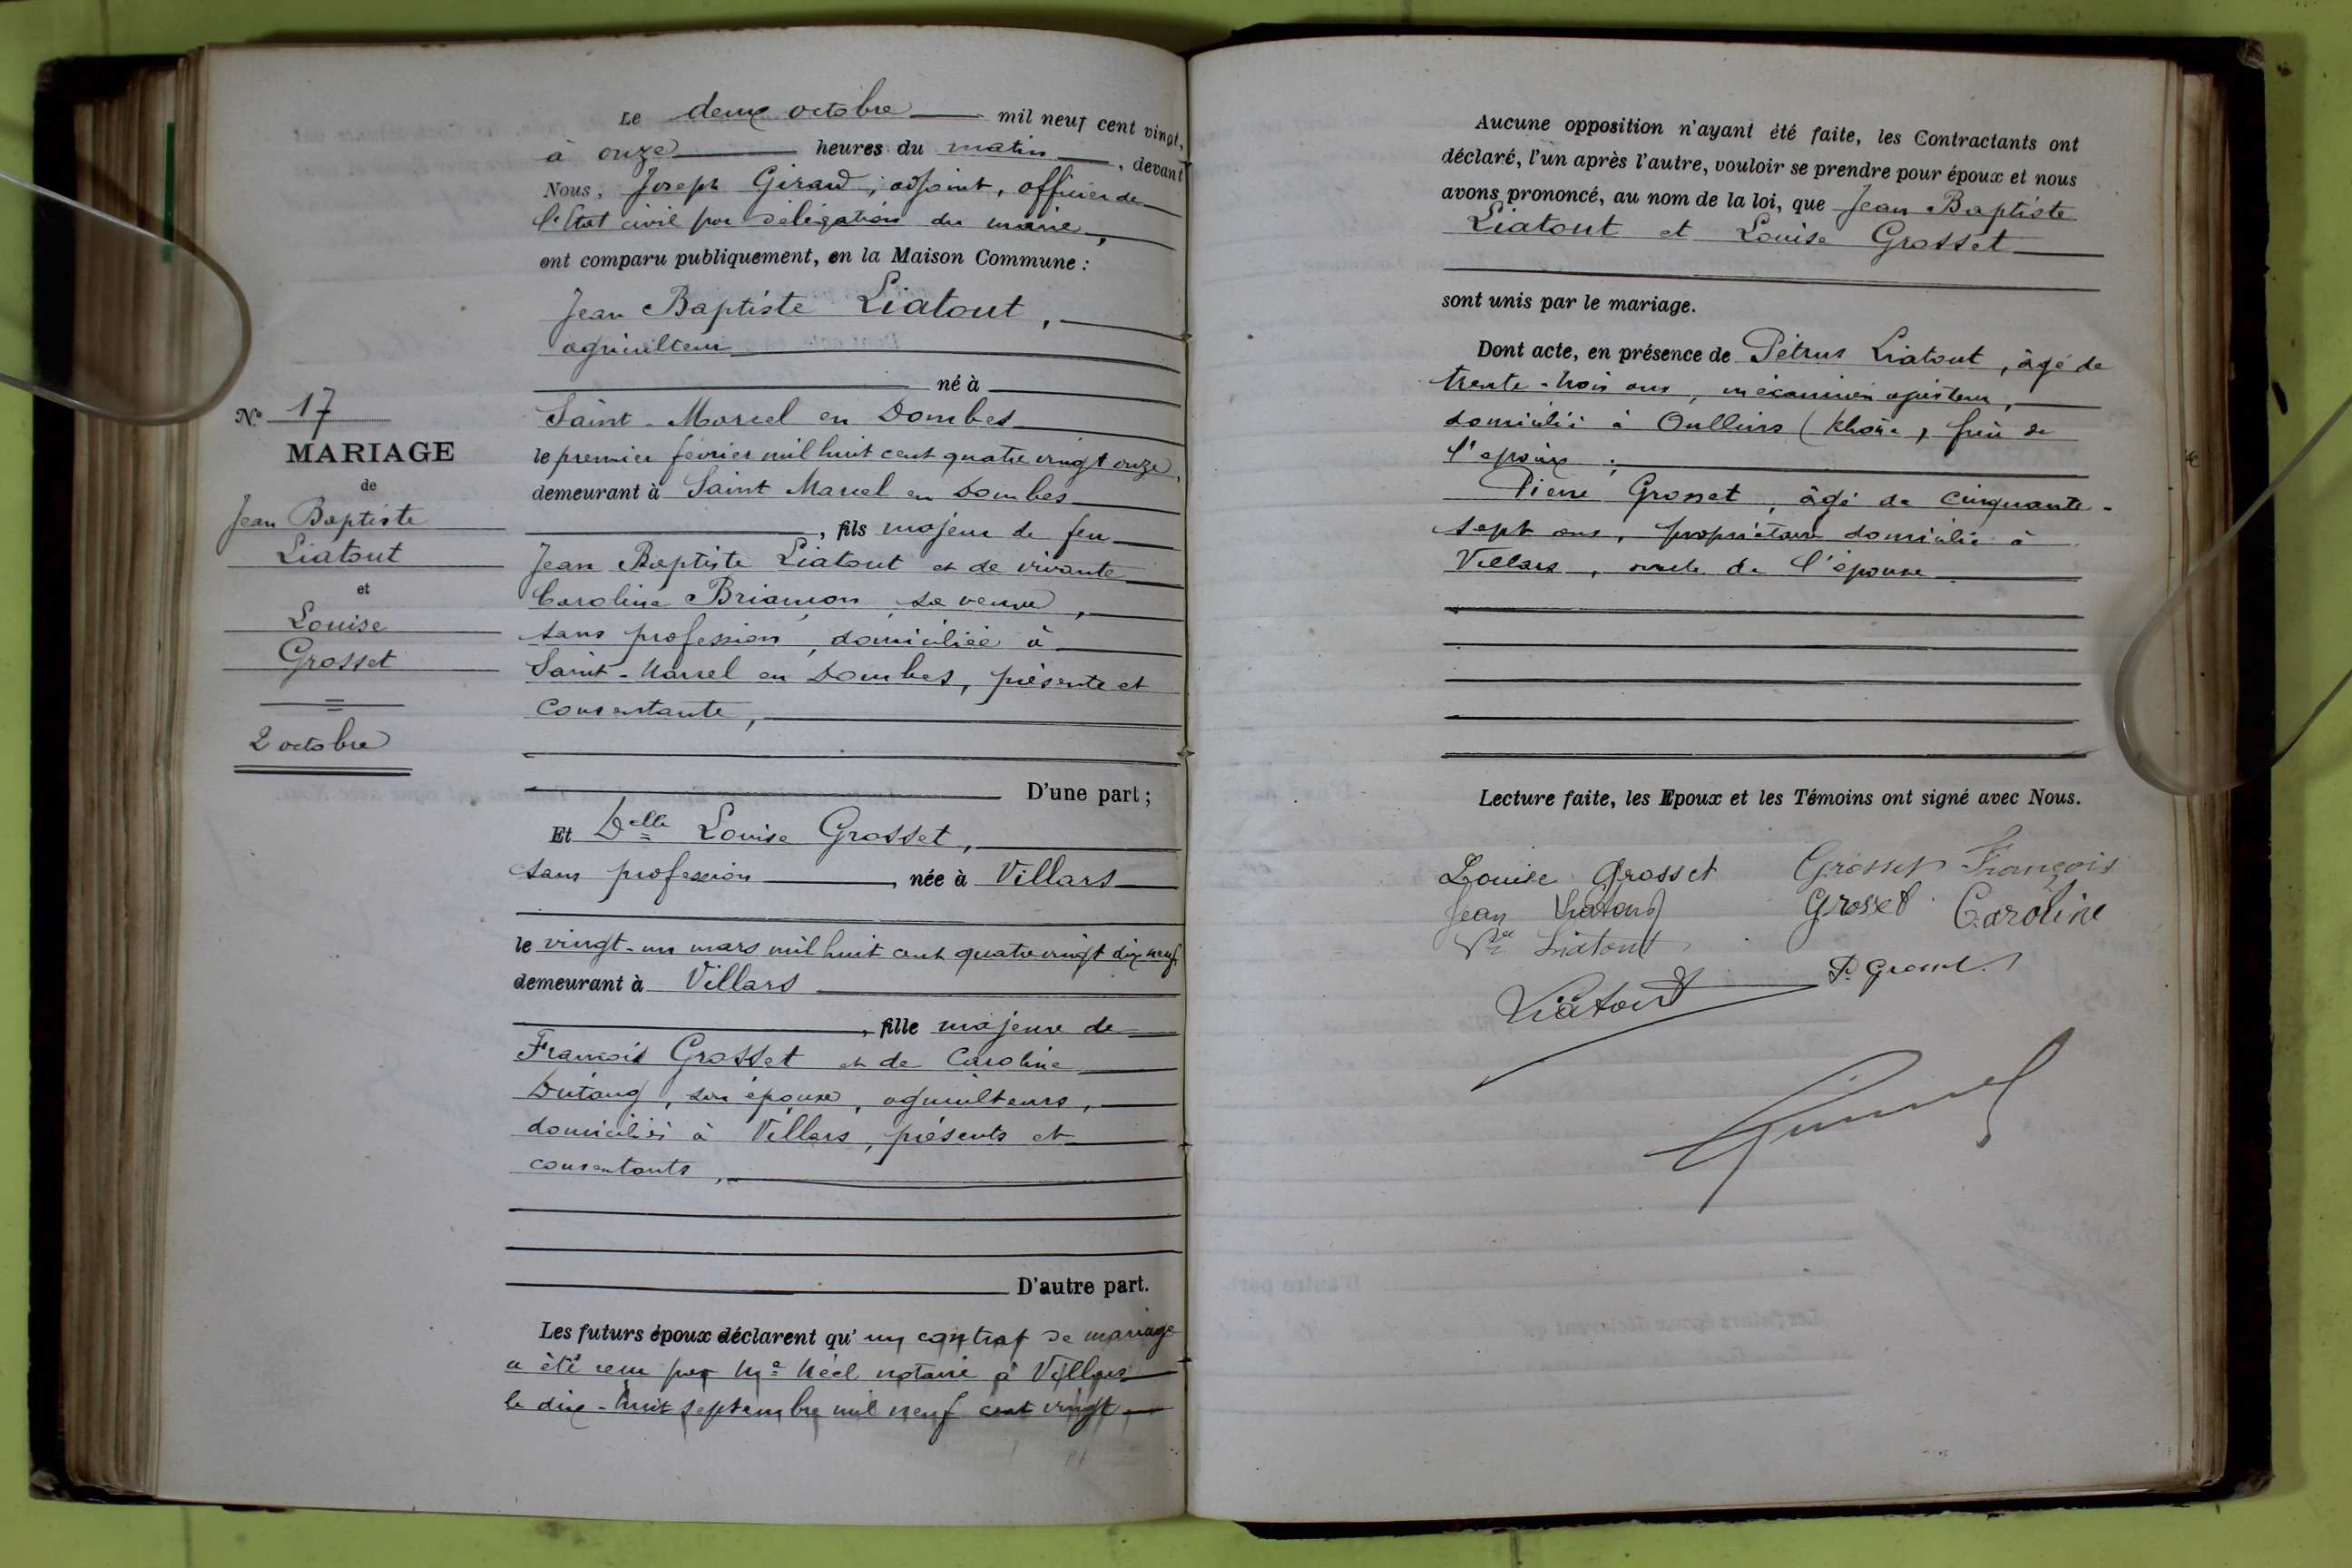 N° 17
MARIAGE
de
Jean Baptiste
Liatout
et
Louise
Grosset
2 octobre
Le deux octobre mil neuf cent vingt,
à onze heures du matin, devant
Nous, Joseph Girard, adjoint, officier de
l'Etat civil par délégation du maire,
ont comparu publiquement, en la Maison Commune :
Jean Baptiste Liatout,
agriculteur
né à
Saint-Marcel en Dombes
le premier février mil huit cent quatre vingt onze,
demeurant à Saint Marcel en Dombes
, fils majeur de feu
Jean Baptiste Liatout et de vivante
Caroline Briamon, sa veuve,
sans profession, domiciliée à
Saint-Marcel en Dombes, présente et
consentante,
D'une part ;
Et Delle Louise Grosset,
sans profession, née à Villars
le vingt-un mars mil huit cent quatre vingt dix neuf,
demeurant à Villars
, fille majeure de
François Grosset et de Caroline
Dutang, son épouse, agriculteurs,
domiciliés à Villars, présents et
consentants,
D'autre part.
Les futurs époux déclarent qu'un contrat de mariage
a été reçu par Me Néel notaire à Villars
le dix-huit septembre mil neuf cent vingt
Aucune opposition n'ayant été faite, les Contractants ont
déclaré, l'un après l'autre, vouloir se prendre pour époux et nous
avons prononcé, au nom de la loi, que Jean Baptiste
Liatout et Louise Grosset
sont unis par le mariage.
Dont acte, en présence de Pétrus Liatout, âgé de
trente-trois ans, mécanicien ajusteur,
domicilié à Oullins (Rhône), frère de
l'époux ;
Pierre Grosset, âgé de cinquante-
sept ans, propriétaire domicilié à
Villars, oncle de l'épouse
Lecture faite, les Epoux et les Témoins ont signé avec Nous.
Louise Grosset Grosset François
Jean Liatout Grosset Caroline
Vve Liatout
Liatout P. Grosset